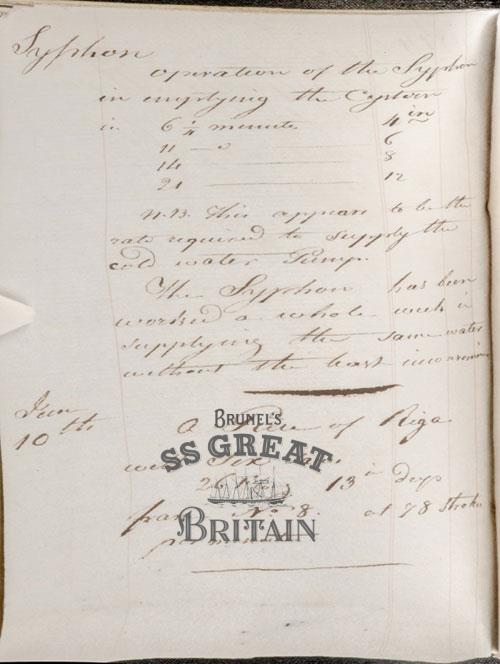 Syphon
operation of the Syphon
in emptying the Cystern
in 6 1/4 minutes 4 in
11 — o 6
14 8
21 12
N.B. This appears to be the
rate required to supply the
cold water Pump.
The Syphon has been
worked a whole week in
supplying the same water
without the least inconvenience
Jan
10th
A of Riga
13 in Deep
from No 8. at 78 Strokes
per
BRUNEL'S
SS GREAT
BRITAIN